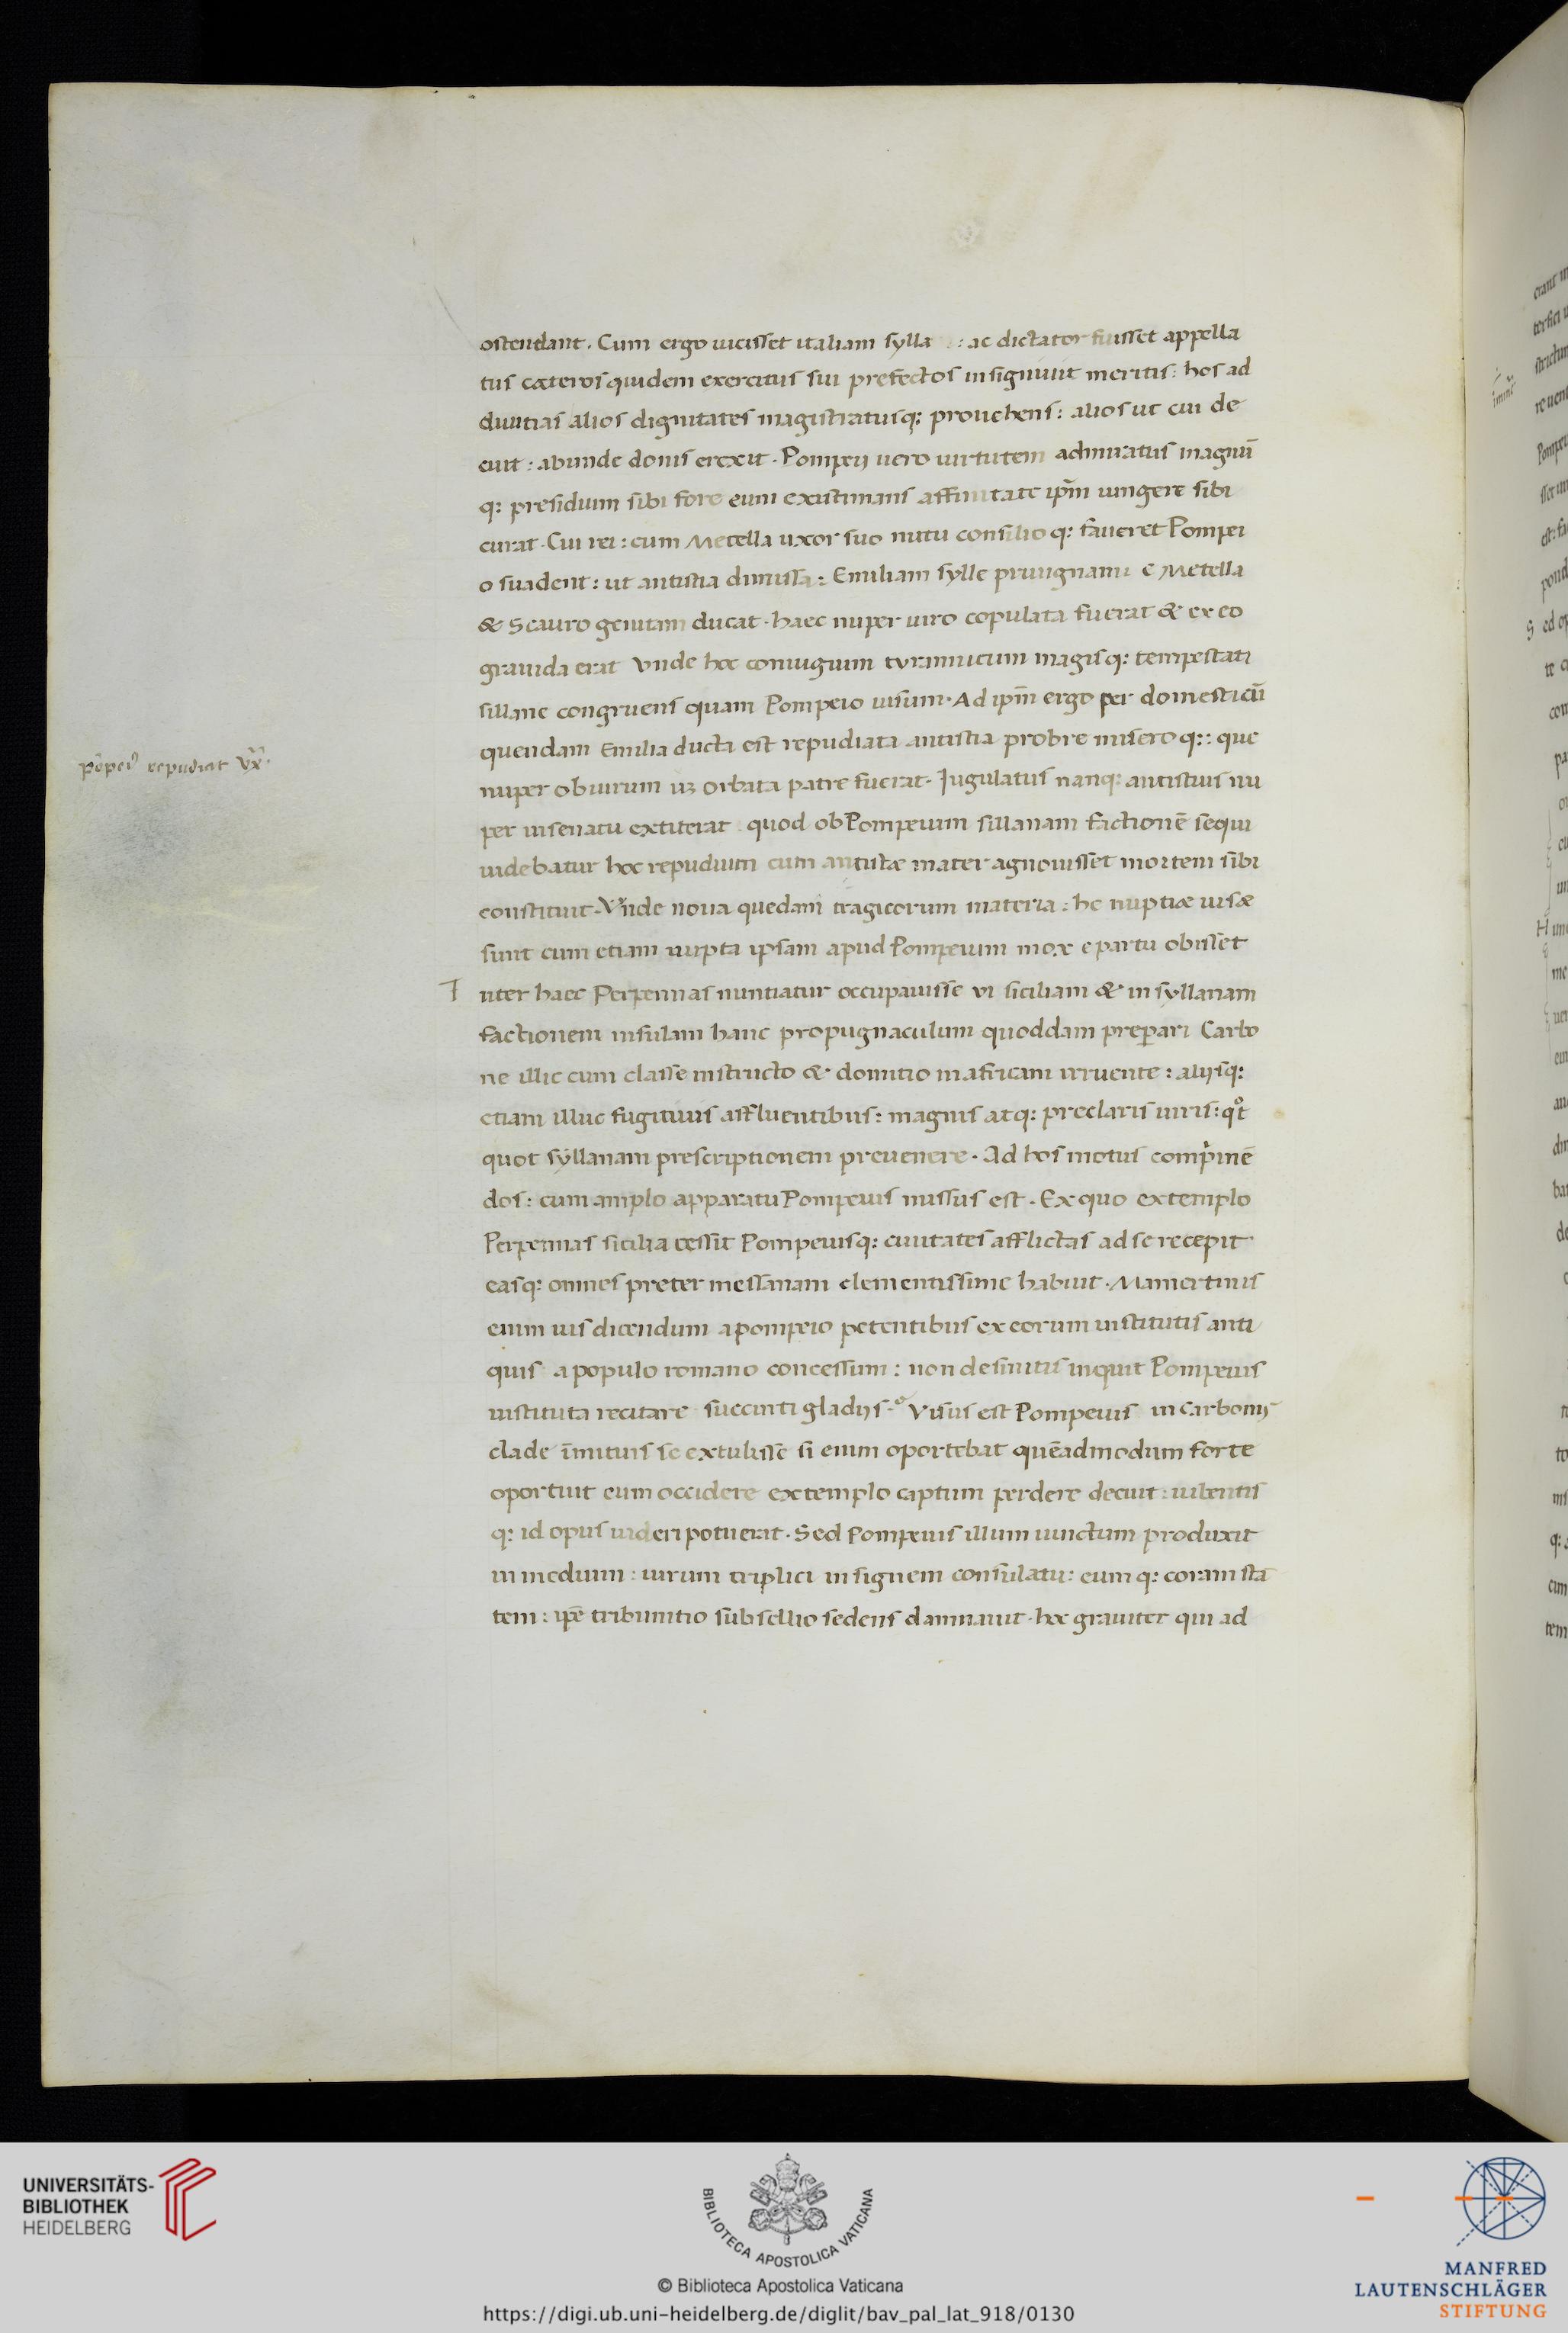 ostendant. Cum ergo uicisset italiam sylla : ac dictator fuisset appella
tus cæteros quidem exercitus sui prefectos insigniuit meritis: hos ad
diuitias alios dignitates magistratusq: prouehens: alios ut cui de
cuit: abunde donis erexit. Pompeij uero uirtutem admiratus magnū
q: presidium sibi fore eum existimans affinitate ip̄m iungere sibi
curat. Cui rei: cum Metella uxor suo nutu consilio q: faueret Pompei
o suadent: ut antistia dimissa: Emiliam sylle priuignam e Metella
& Scauro genitam ducat. haec nuper uiro copulata fuerat & ex eo
grauida erat Vnde hoc coniugium tyrannicum magisq: tempestati
sillane congruens quam Pompeio uisum. Ad ip̄m ergo per domesticū
quendam Emilia ducta est repudiata antistia probre misero q: que
pōpei᷒ repudiat vx̄
nuper ob uirum orbata patre fuerat. Jugulatus nanq: antistius nu
per in senatu extiterat quod ob Pompeium sillanam factionē sequi
uidebatur hoc repudium cum antistæ mater agnouisset mortem sibi
constituit. Vnde noua quedam tragicorum materia: he nuptiæ uisæ
sunt cum etiam nupta ipsam apud Pompeium mox e partu obiisset
Inter haec Perpennas nuntiatur occupauisse vi siciliam & in syllanam
factionem insulam hanc propugnaculum quoddam preparari Carbo
ne illic cum classe instructo & domitio in africam irruente: alijsq:
etiam illuc fugitiuis affluentibus: magnis atq: preclaris uiris: qͦt
quot syllanam prescriptionem preuenere. Ad hos motus comp̓mē
dos: cum amplo apparatu Pompeius missus est. Ex quo extemplo
Perpennas sicilia cessit Pompeiusq: ciuitates afflictas ad se recepit
easq: omnes preter messanam clementissime habuit. Mamertinis
enim ius dicendum a pompeio petentibus ex eorum institutis anti
quis a populo romano concessum: non desinitis inquit Pompeius
instituta recitare succinti gladijs. Visus est Pompeius in Carbonis
clade īmitius se extulisse si enim oportebat quēadmodum forte
oportuit eum occidere extemplo captum perdere decuit: iubentis
q: id opus uideri potuerat. Sed Pompeius illum uinctum produxit
in medium: uirum triplici insignem consulatu: eum q: coram stā
tem: ip̄e tribunitio subsellio sedens damnauit. hoc grauiter qui ad
UNIVERSITÄTS-
BIBLIOTHEK
HEIDELBERG
BIBLIOTECA APOSTOLICA VATICANA
© Biblioteca Apostolica Vaticana
https://digi.ub.uni-heidelberg.de/diglit/bav_pal_lat_918/0130
MANFRED
LAUTENSCHLÄGER
STIFTUNG